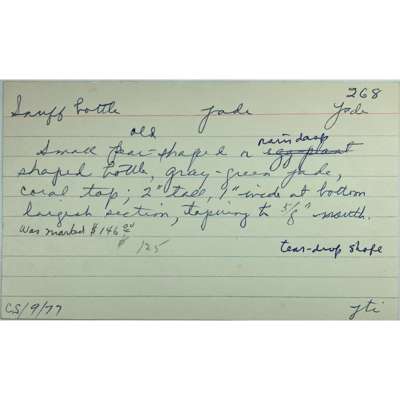 268
Snuff bottle jade Jade
old
Small pear-shaped or egg-plant raindrop
shaped bottle, gray-green jade,
coral top; 2" tall, 1" wide at bottom
largest section, tapering to 5/8" mouth.
Was marked $146.00
$125
tear-drop shape
CS/9/77